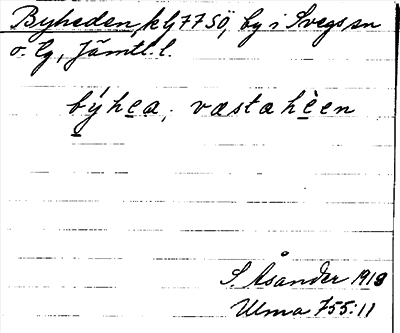 Byheden, k lj 77 SÖ, by i Svegs sn
o. lg, Jämtl. l.
býhea, væstahèen
S. Åsander 1918
Ulma 755:11